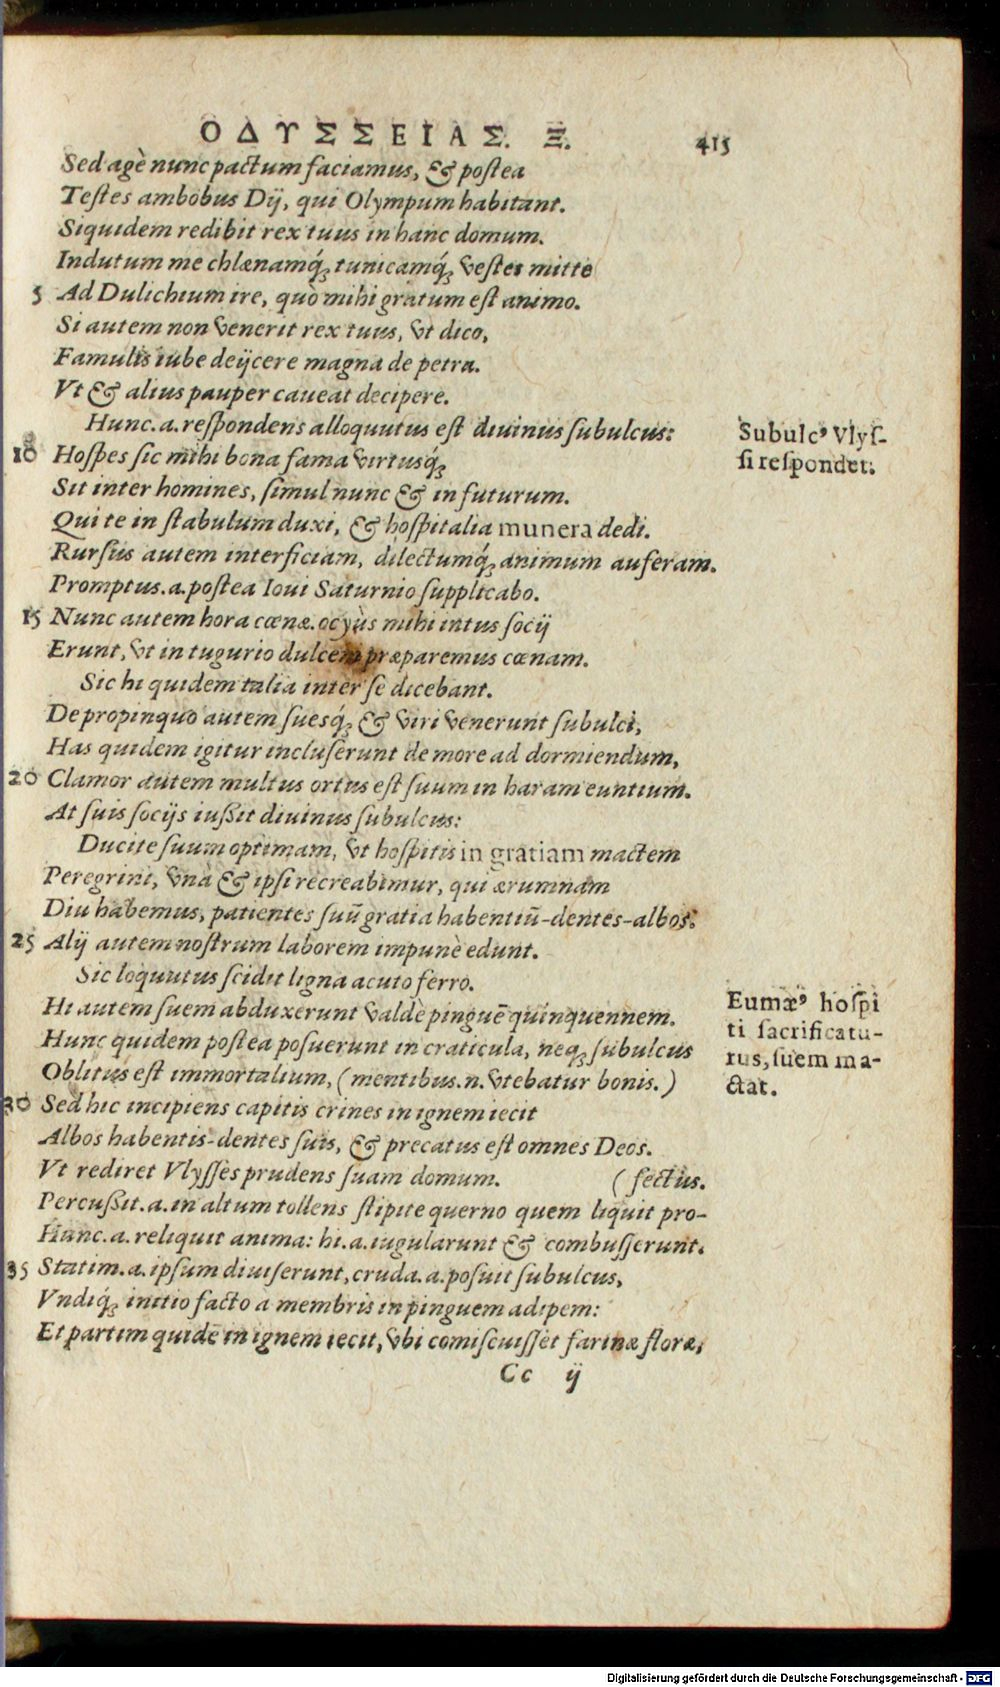 ΟΔΥΣΣΕΙΑΣ. Ξ. 415
Sed agè nunc pactum faciamus, & postea
Testes ambobus Dij, qui Olympum habitant.
Siquidem redibit rex tuus in hanc domum.
Indutum me chlænamq́; tunicamq́; vestes mitte
5 Ad Dulichium ire, quò mihi gratum est animo.
Si autem non venerit rex tuus, vt dico,
Famulis iube deijcere magna de petra.
Vt & alius pauper caueat decipere.
Hunc.a.respondens alloquutus est diuinus subulcus:
Subulcꝰ Vlys-
si respondet.
10 Hospes sic mihi bona fama virtusq́;
Sit inter homines, simul nunc & in futurum.
Qui te in stabulum duxi, & hospitalia munera dedi.
Rursus autem interficiam, dilectumq́; animum auferam.
Promptus.a.postea Ioui Saturnio supplicabo.
15 Nunc autem hora cœnæ. ocyùs mihi intus socij
Erunt, vt in tugurio dulcem præparemus cœnam.
Sic hi quidem talia inter se dicebant.
De propinquo autem suesq́; & viri venerunt subulci,
Has quidem igitur incluserunt de more ad dormiendum,
20 Clamor autem multus ortus est suum in haram euntium.
At suis socijs iußit diuinus subulcus:
Ducite suum optimam, vt hospitis in gratiam mactem
Peregrini, vnà & ipsi recreabimur, qui ærumnam
Diu habemus, patientes suũ gratia habentiũ-dentes-albos.
25 Alij autem nostrum laborem impunè edunt.
Sic loquutus scidit ligna acuto ferro.
Hi autem suem abduxerunt valdè pinguē quinquennem.
Eumæꝰ hospi
ti sacrificatu-
rus, suem ma-
ctat.
Hunc quidem postea posuerunt in craticula, neq; subulcus
Oblitus est immortalium, (mentibus.n.vtebatur bonis.)
30 Sed hic incipiens capitis crines in ignem iecit
Albos habentis-dentes suis, & precatus est omnes Deos.
Vt rediret Vlysses prudens suam domum. (fectus.
Percußit.a.in altum tollens stipite querno quem liquit pro-
Hunc.a.reliquit anima: hi.a.iugularunt & combusserunt.
35 Statim.a.ipsum diuiserunt, cruda.a.posuit subulcus,
Vndiq́; initio facto a membris in pinguem adipem:
Et partim quidē in ignem iecit, vbi comiscuisset farinæ floræ,
Cc ij
Digitalisierung gefördert durch die Deutsche Forschungsgemeinschaft - DFG